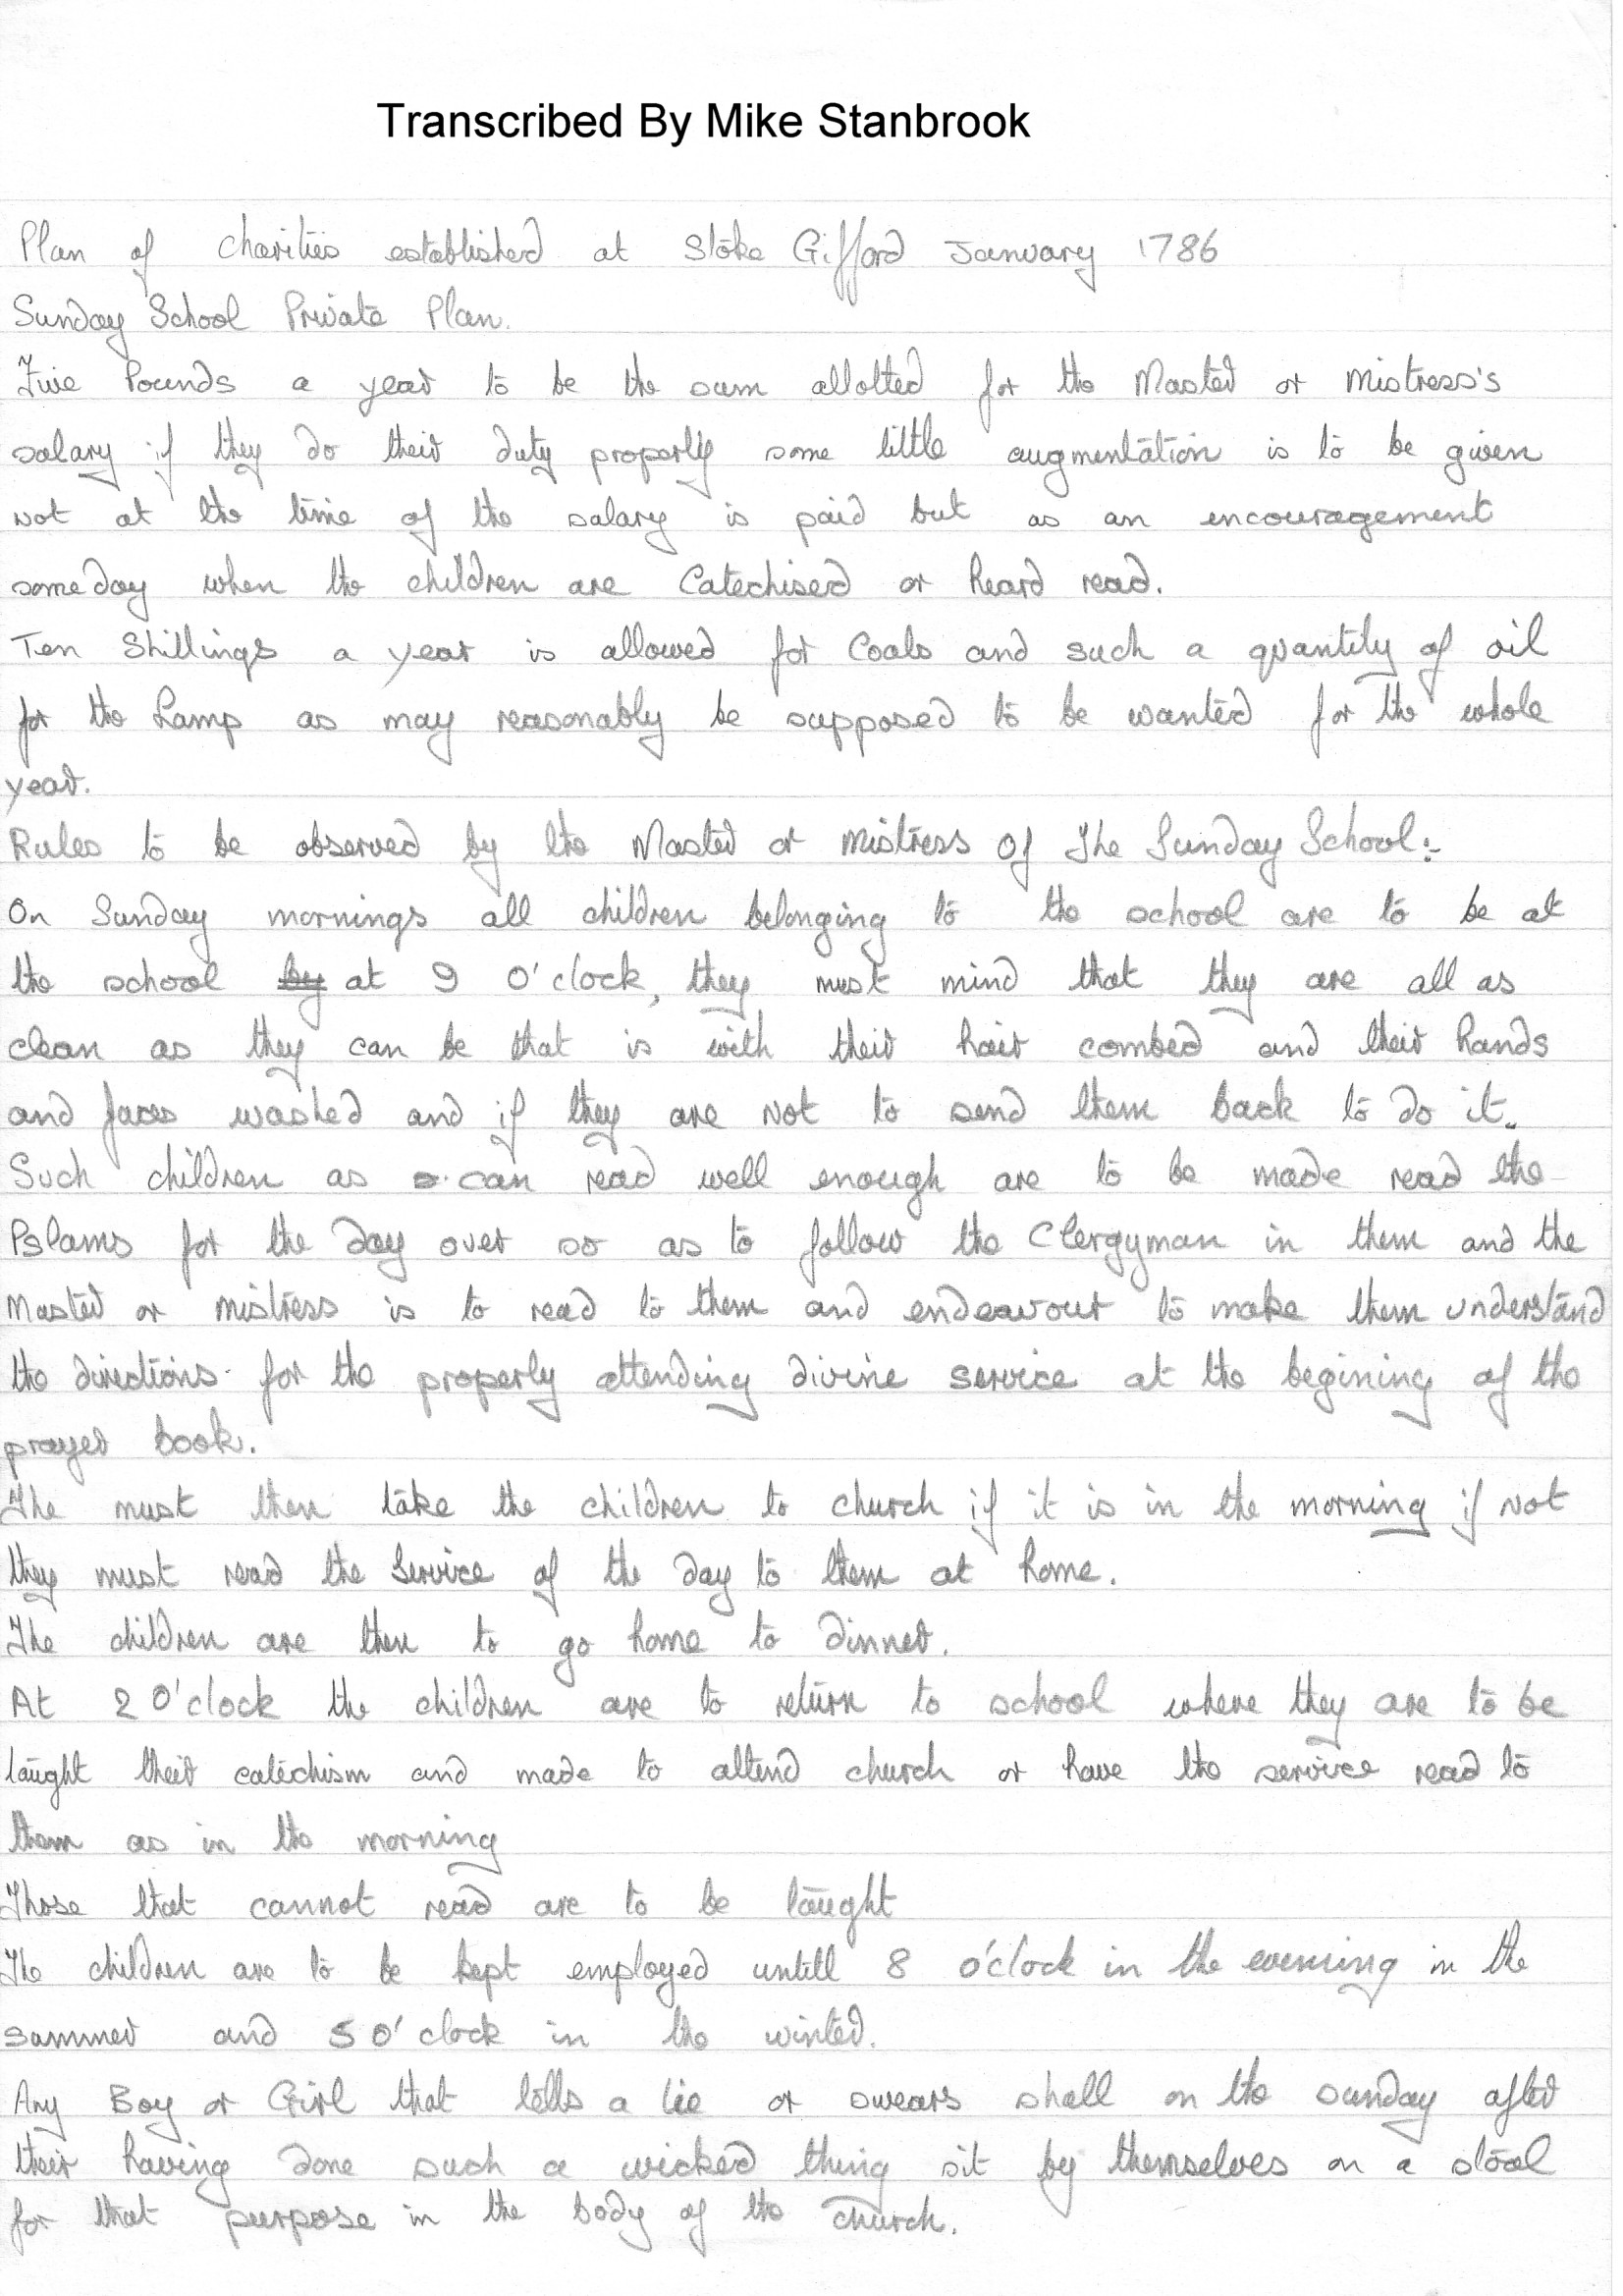 Transcribed By Mike Stanbrook
Plan of Charities established at Stoke Gifford January 1786
Sunday School Private Plan.
Five Pounds a year to be the sum allotted for the Master or Mistress's
salary if they do their duty properly some little augmentation is to be given
not at the time of the salary is paid but as an encouragement
someday when the children are Catechised or heard read.
Ten Shillings a year is allowed for Coals and such a quantity of oil
for the Lamp as may reasonably be supposed to be wanted for the whole
year.
Rules to be observed by the Master or Mistress Of The Sunday School:-
On Sunday mornings all children belonging to the school are to be at
the school by at 9 O'clock, they must mind that they are all as
clean as they can be that is with their hair combed and their hands
and faces washed and if they are not to send them back to do it.
Such children as can read well enough are to be made read the
Pslams for the day over so as to follow the Clergyman in them and the
Master or Mistress is to read to them and endeavour to make them understand
the directions for the properly attending divine service at the begining of the
prayer book.
The must then take the children to church if it is in the morning if not
they must read the Service of the day to them at home.
The children are then to go home to dinner.
At 2 O'clock the children are to return to school where they are to be
taught their catechism and made to attend church or have the service read to
them as in the morning
Those that cannot read are to be taught
The children are to be kept employed untill 8 o'clock in the evening in the
summer and 5 O'clock in the winter.
Any Boy or Girl that tells a lie or swears shall on the sunday after
their having done such a wicked thing sit by themselves on a stool
for that purpose in the body of the church.